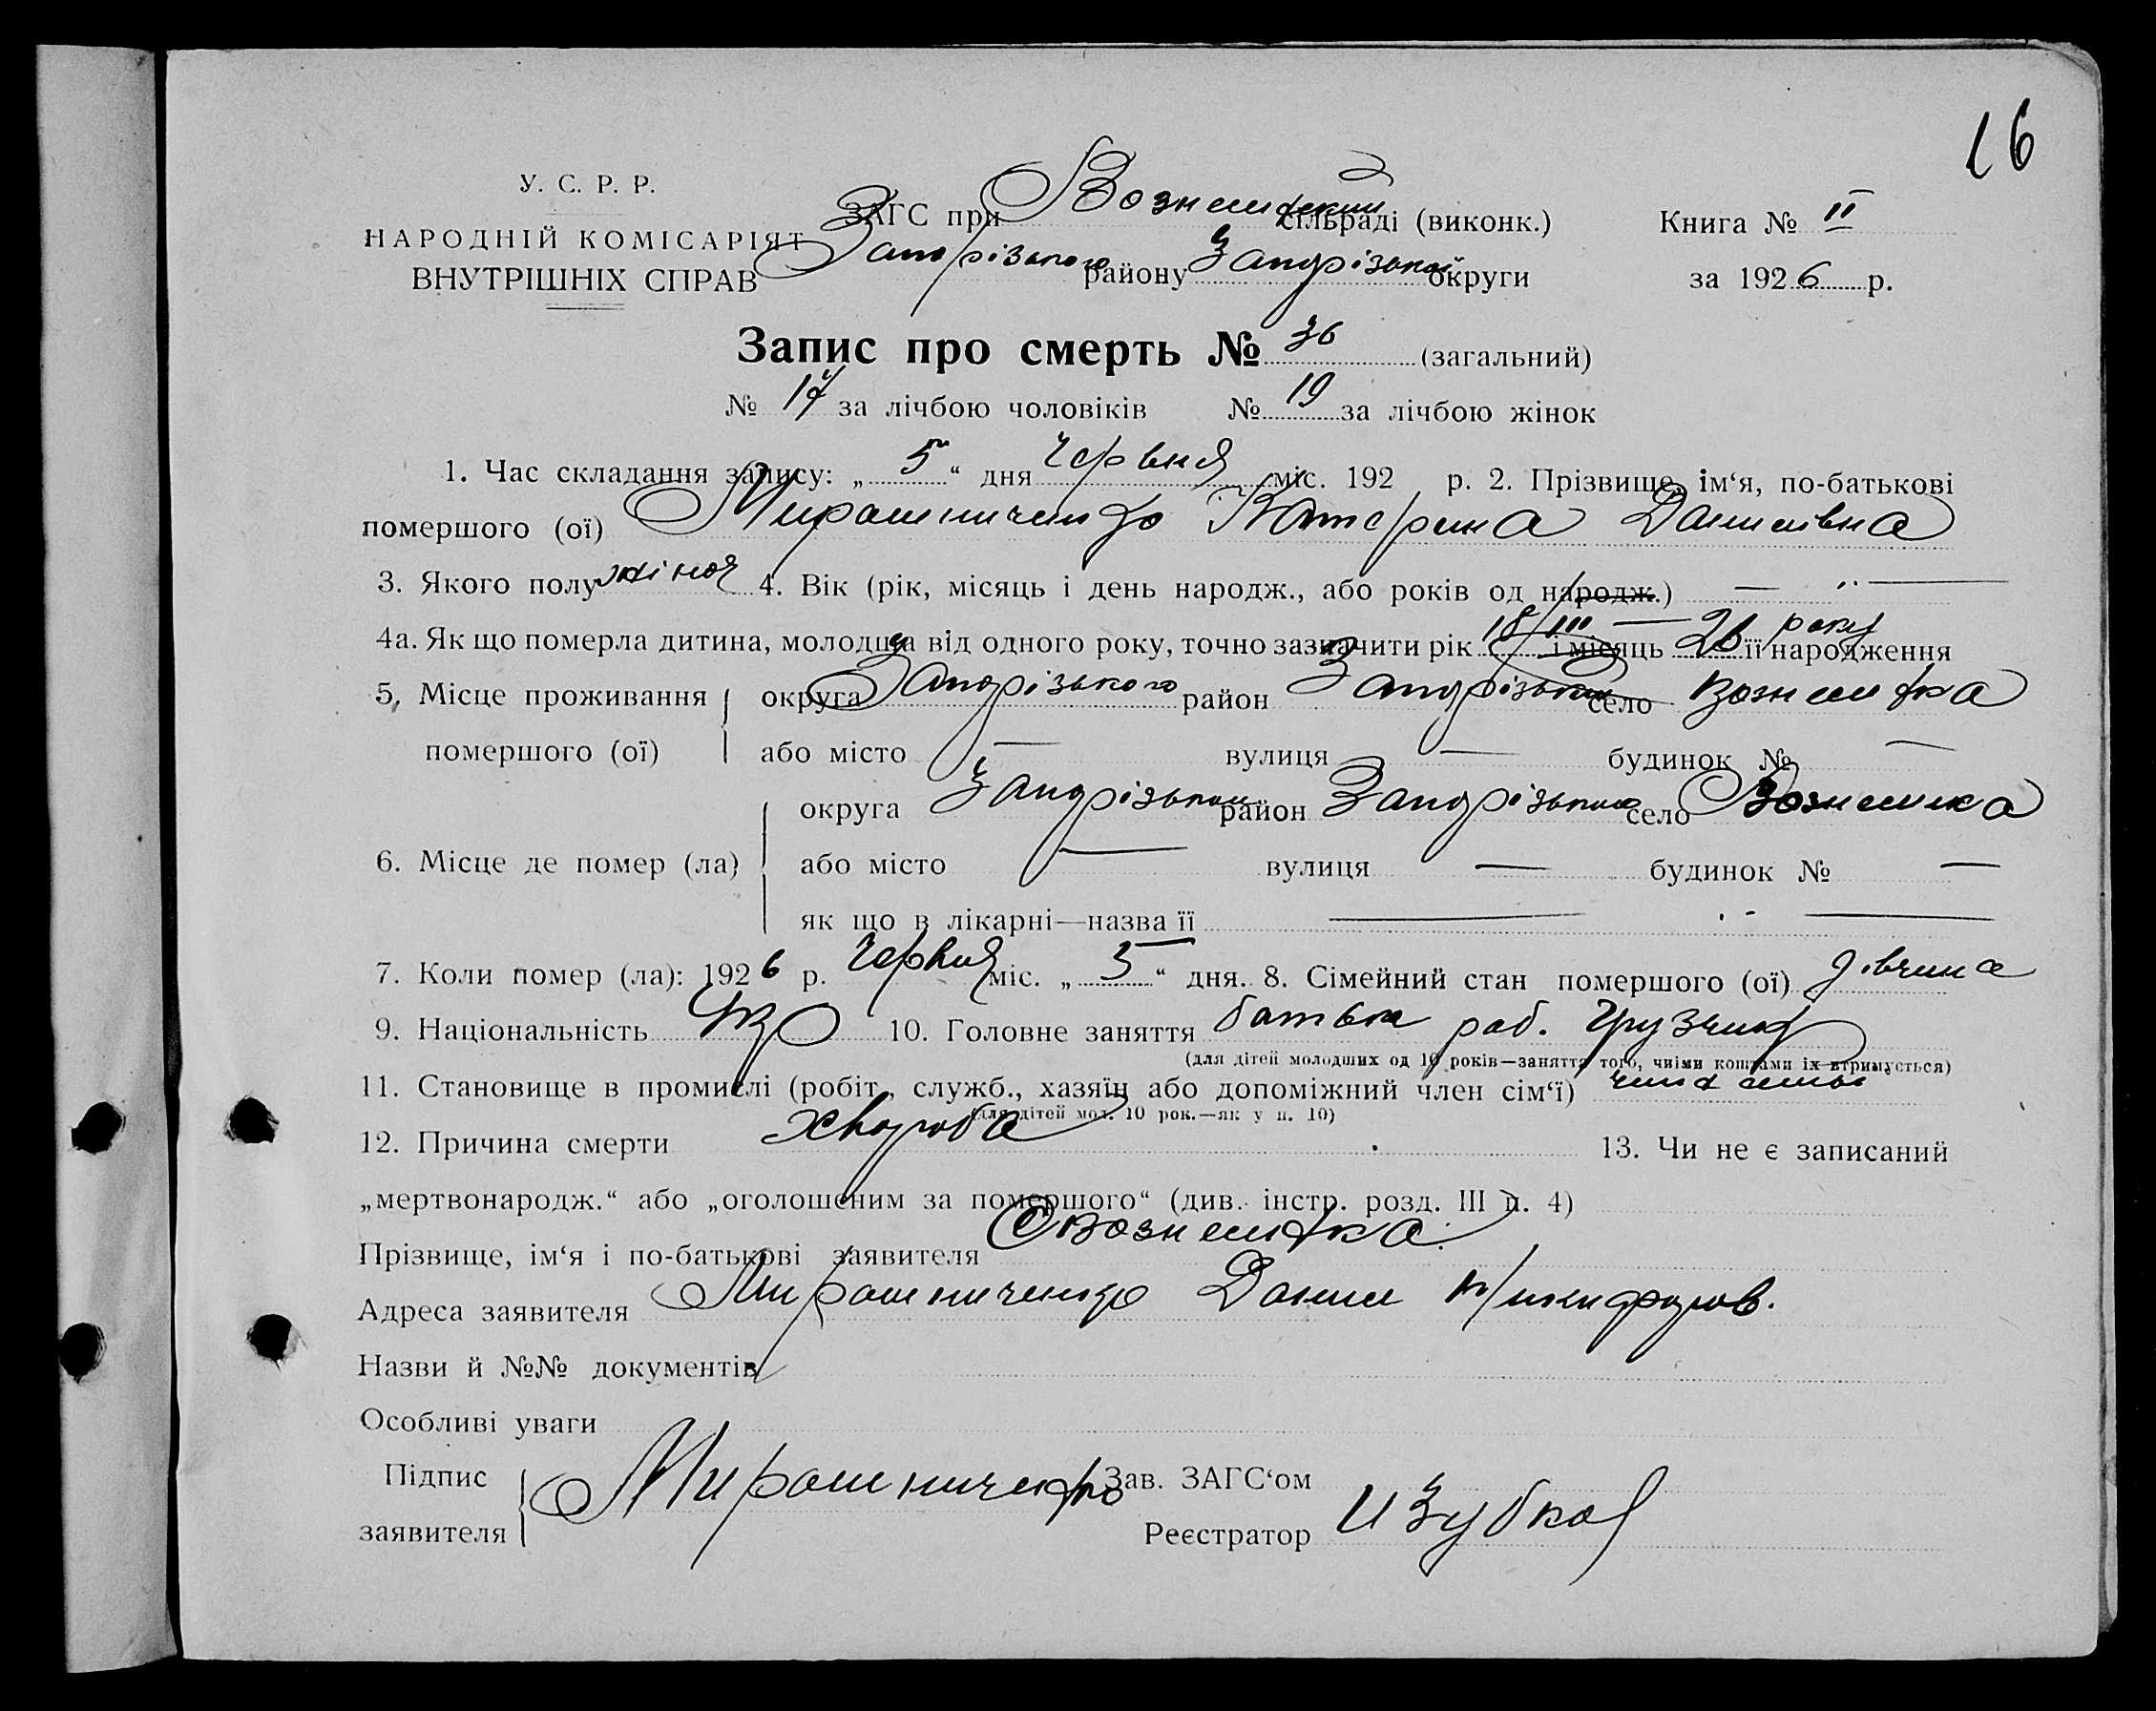 16
У. С. Р. Р.
НАРОДНІЙ КОМІСАРІЯТ
ВНУТРІШНІХ СПРАВ
ЗАГС при Вознесенській сільраді (виконк.) Книга № II
Запорізького району Запорізької округи за 1926 р.
Запис про смерть № 36 (загальний)
№ 17 за лічбою чоловіків № 19 за лічбою жінок
1. Час складання запису: „5“ дня Червня міс. 192 р. 2. Прізвище, ім‘я, по-батькові
помершого (ої) Мирошниченко Катерина Данилівна
3. Якого полу жіноч 4. Вік (рік, місяць і день народж., або років од народж.) —
4а. Як що померла дитина, молодша від одного року, точно зазначити рік 18/III і місяць 26 року її народження
5. Місце проживання округа Запорізького район Запорізький село Вознесенка
помершого (ої) або місто — вулиця — будинок № —
округа Запорізької район Запорізький село Вознесенка
6. Місце де помер (ла) або місто — вулиця — будинок № —
як що в лікарні—назва її —
7. Коли помер (ла): 1926 р. Червня міс. „5“ дня. 8. Сімейний стан помершого (ої) дівчина
9. Національність Укр 10. Головне заняття батька роб. Грузчик
(для дітей молодших од 10 років—заняття того, чиїми коштами їх втримується)
11. Становище в промислі (робіт., служб., хазяїн або допоміжний член сім‘ї) член
(для дітей мол. 10 рок.—як у п. 10)
12. Причина смерти хвороба 13. Чи не є записаний
„мертвонародж.“ або „оголошеним за помершого“ (див. інстр. розд. III п. 4)
Прізвище, ім‘я і по-батькові заявителя С Вознесенка
Адреса заявителя Мирошниченко Данил Никифоров.
Назви й №№ документів
Особливі уваги
Підпис заявителя Мирошниченко Зав. ЗАГС‘ом
Реєстратор И Зубков